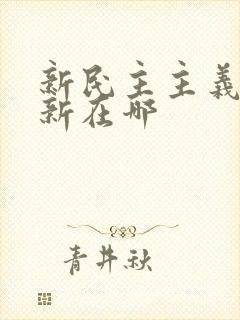 新民主主義
新在哪
青井秋